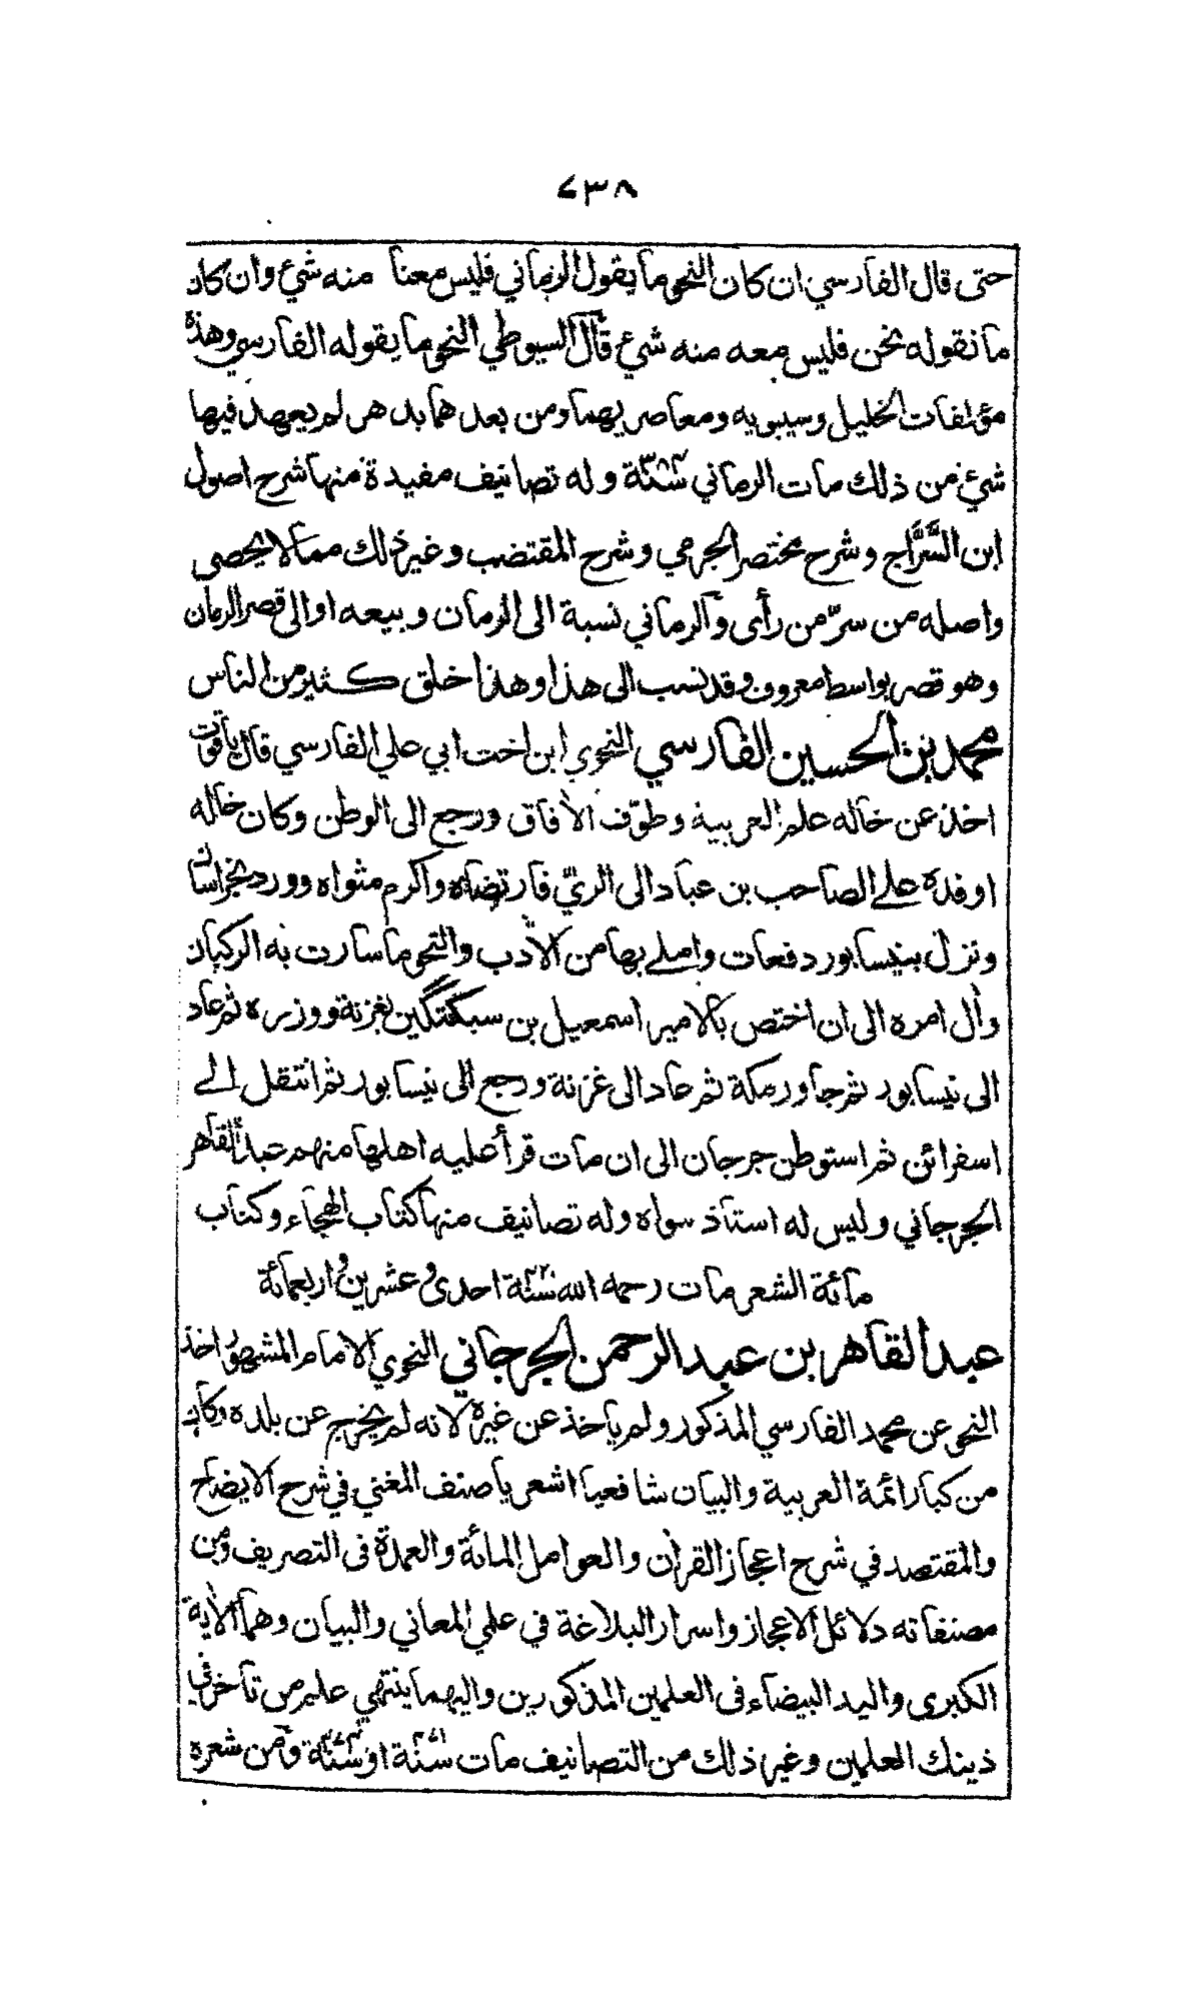 ٤٣٨
حتى قال الفارسي ان كان النحو ما يقول الرماني فليس معنا منه شئ وان كان
ما نقوله نحن فليس معه منه شئ قال السيوطي النحو ما يقوله الفارسي وهذه
مؤلفات الخليل وسيبويه ومعاصريهما ومن بعدهما بدهر لم يعهد فيها
شئ من ذلك مات الرماني سنة وله تصانيف مفيدة منها شرح اصول
ابن السَّرَّاج وشرح مختصر الجرمي وشرح المقتضب وغير ذلك مما لا يحصى
واصله من سرّ من رأى والرماني نسبة الى الرمان وبيعه او الى قصر الرمان
وهو قصر بواسط معروف وقد نسب الى هذا وهذا خلق كثير من الناس
محمد بن الحسين الفارسي النحوي ابن اخت ابي علي الفارسي قال ياقوت
اخذ عن خاله علم العربية وطوّف الآفاق ورجع الى الوطن وكان خاله
اوفده على الصاحب بن عباد الى الريّ فارتضاه واكرم مثواه وورد بخراسان
ونزل بنيسابور دفعات واملى بها من الأدب والنحو ما سارت به الركبان
وآل امره الى ان اختص بالامير اسمعيل بن سبكتگين بغزنة ووزره ثم عاد
الى نيسابور ثم جاور مكة ثم عاد الى غزنة ورجع الى نيسابور ثم انتقل الى
اسفرائن ثم استوطن جرجان الى ان مات قرأ عليه اهلها منهم عبد القاهر
الجرجاني وليس له استاذ سواه وله تصانيف منها كتاب الهجاء وكتاب
مائة الشعر مات رحمه الله سنة احدى وعشرين واربعمائة
عبد القاهر بن عبد الرحمن الجرجاني النحوي الامام المشهور اخذ
النحو عن محمد الفارسي المذكور ولم يأخذ عن غيره لانه لم يخرج عن بلده وكان
من كبار ائمة العربية والبيان شافعيا اشعريا صنف المغني في شرح الايضاح
والمقتصد في شرح اعجاز القرآن والعوامل المائة والعمدة فى التصريف ومن
مصنفاته دلائل الاعجاز واسرار البلاغة في علمي المعاني والبيان وهما الآية
الكبرى واليد البيضاء فى العلمين المذكورين واليهما ينتهي علم من تأخر في
ذينك العلمين وغير ذلك من التصانيف مات سنة او سنة ومن شعره